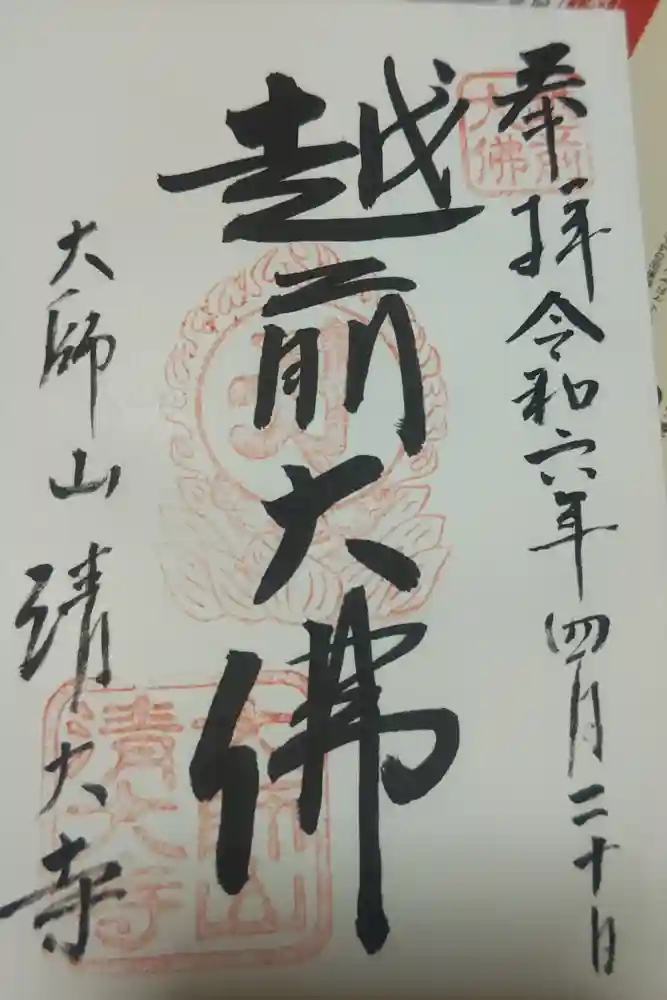 奉拝 令和六年四月二十日
越前大佛
大師山 清大寺
越前
大佛
大師山
清大寺